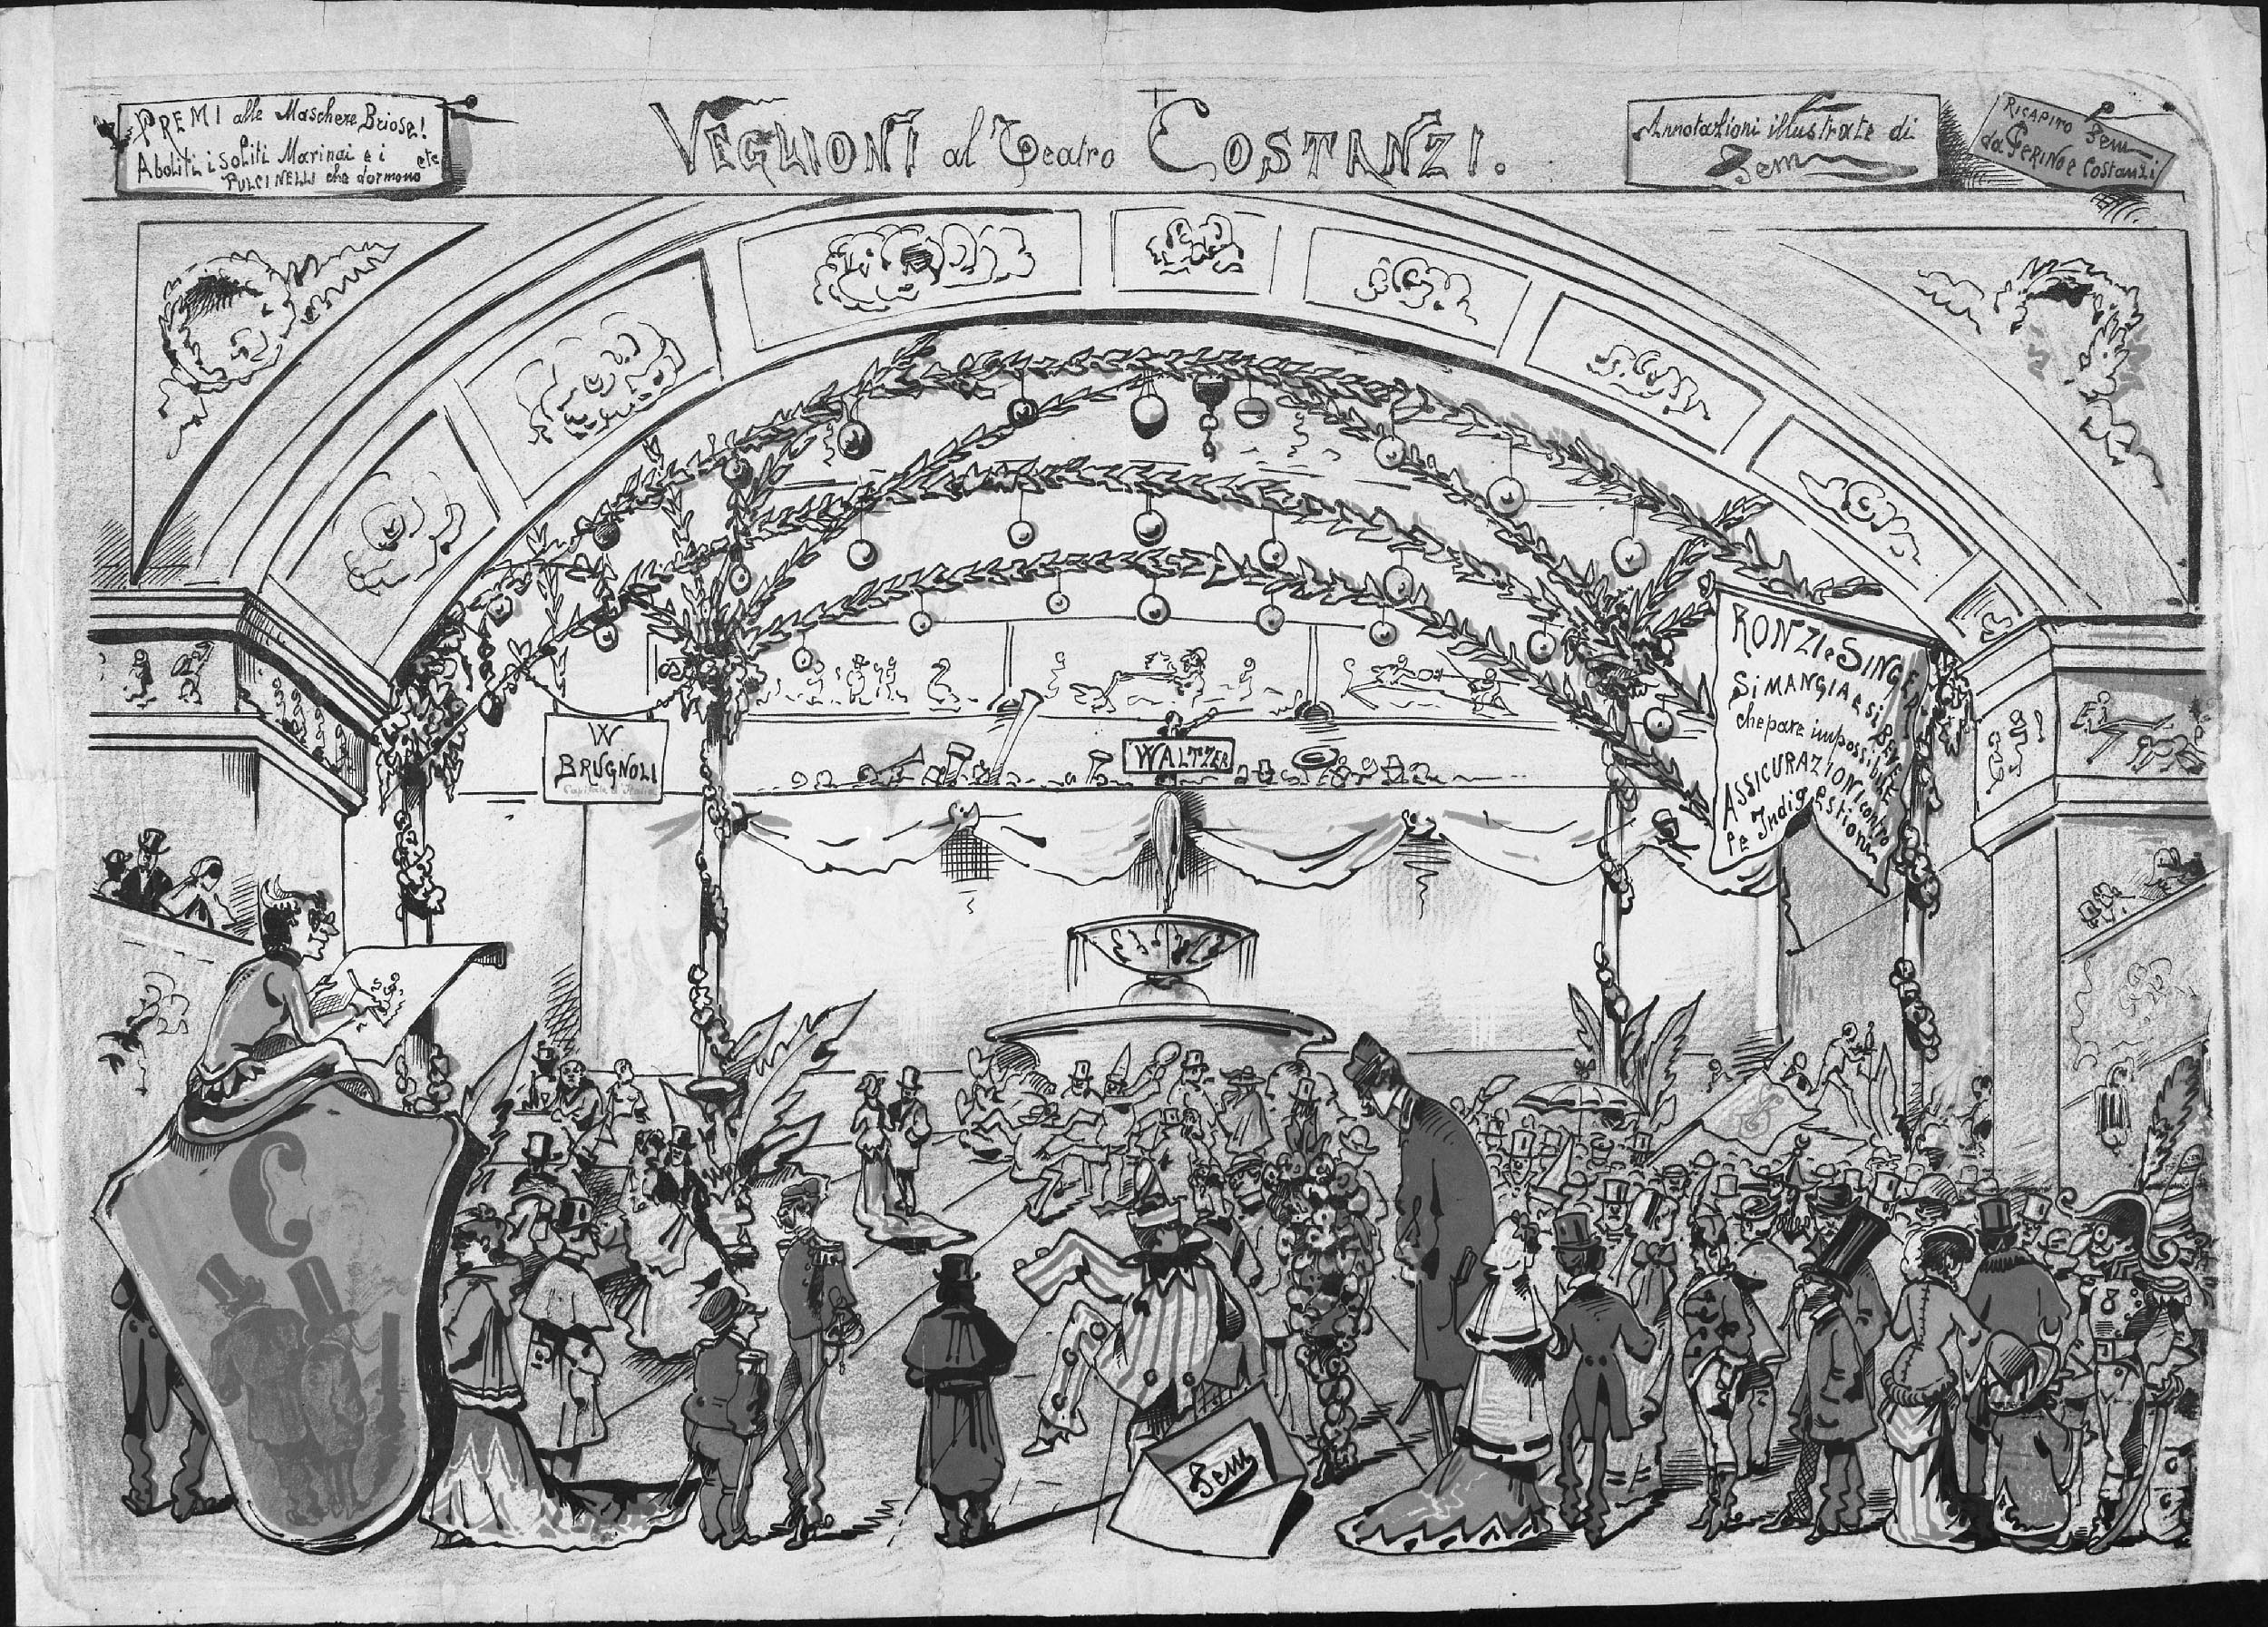 PREMI alle Maschere Briose!
Aboliti i soliti Marinai e i etc
PULCINELLI che dormono
VEGLIONI al Teatro COSTANZI.
Annotazioni illustrate di
Sem
RICAPITO Sem
da PERINO e Costanzi
RONZI e SINGER
Si MANGIA e si BEVE
che pare impossibile
ASSICURAZIONI contro
le Indigestioni
W
BRUGNOLI
Capitale d'Italia
WALTZER
C
Sem